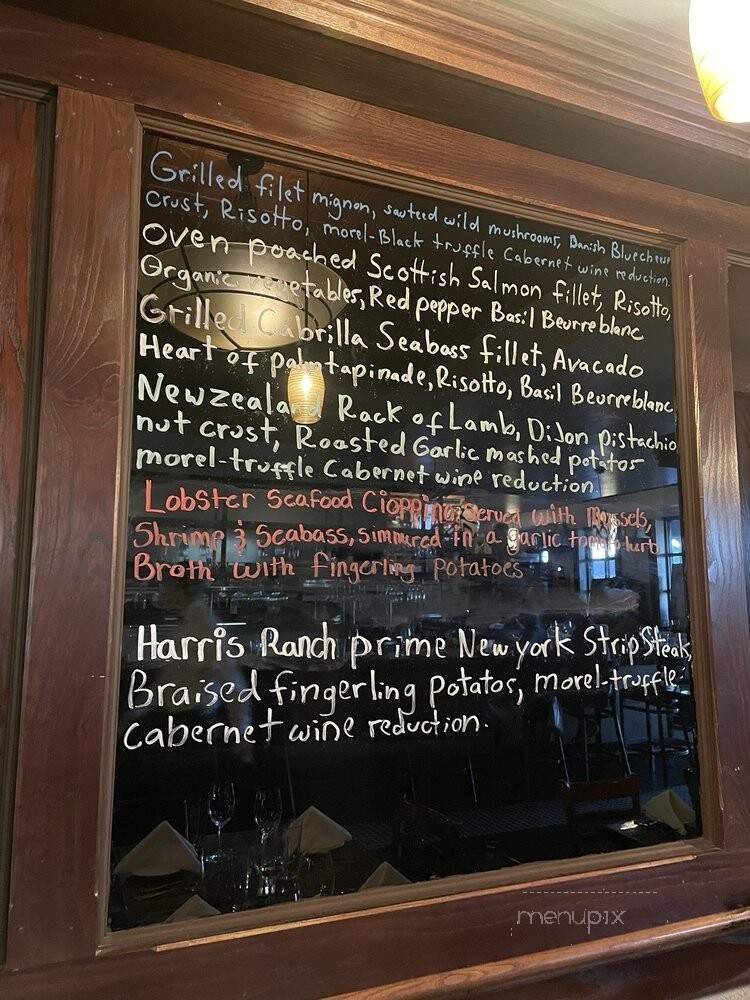 Grilled filet mignon, sauteed wild mushrooms, Danish Bluecheese
crust, Risotto, morel-Black truffle Cabernet wine reduction.
Oven poached Scottish Salmon fillet, Risotto,
Organic vegetables, Red pepper Basil Beurreblanc
Grilled Cabrilla Seabass fillet, Avacado
Heart of palmtapinade, Risotto, Basil Beurreblanc
Newzealand Rack of Lamb, DiJon pistachio
nut crust, Roasted Garlic mashed potatos
morel-truffle Cabernet wine reduction.
Lobster Seafood Cioppino served with Mussels,
Shrimp & Seabass, simmured in a garlic tomato herb
Broth with fingerling potatoes
Harris Ranch prime New york Strip Steak,
Braised fingerling potatos, morel-truffle
cabernet wine reduction.
menupix